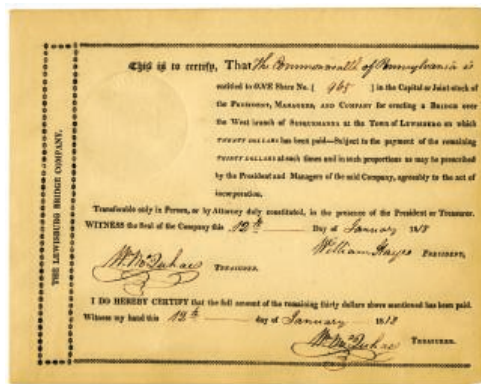 THE LEWISBURG BRIDGE COMPANY.
This is to certify, That The Commonwealth of Pennsylvania is
entitled to ONE Share No. [ 965 ] in the Capital or Joint stock of
the PRESIDENT, MANAGERS, AND COMPANY for erecting a BRIDGE over
the West branch of SUSQUEHANNA at the TOWN of LEWISBURG on which
TWENTY DOLLARS has been paid—Subject to the payment of the remaining
THIRTY DOLLARS at such times and in such proportions as may be prescribed
by the President and Managers of the said Company, agreeably to the act of
incorporation.
Transferable only in Person, or by Attorney duly constituted, in the presence of the President or Treasurer.
WITNESS the Seal of the Company this 12th Day of January 1818
William Hayes PRESIDENT,
TREASURER.
I DO HEREBY CERTIFY that the full amount of the remaining thirty dollars above mentioned has been paid.
Witness my hand this 12th day of January 1818
TREASURER.